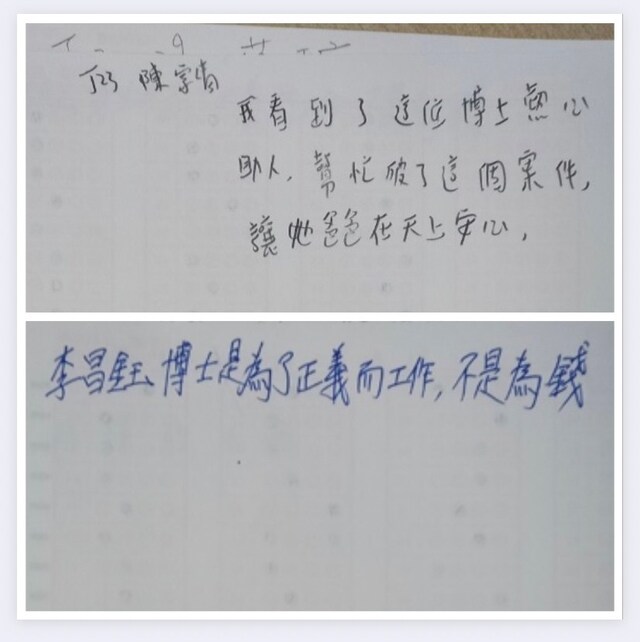 我看到了這位博士熱心
助人,幫忙破了這個案件,
讓她爸爸在天上安心,
李昌鈺博士是為了正義而工作,不是為錢